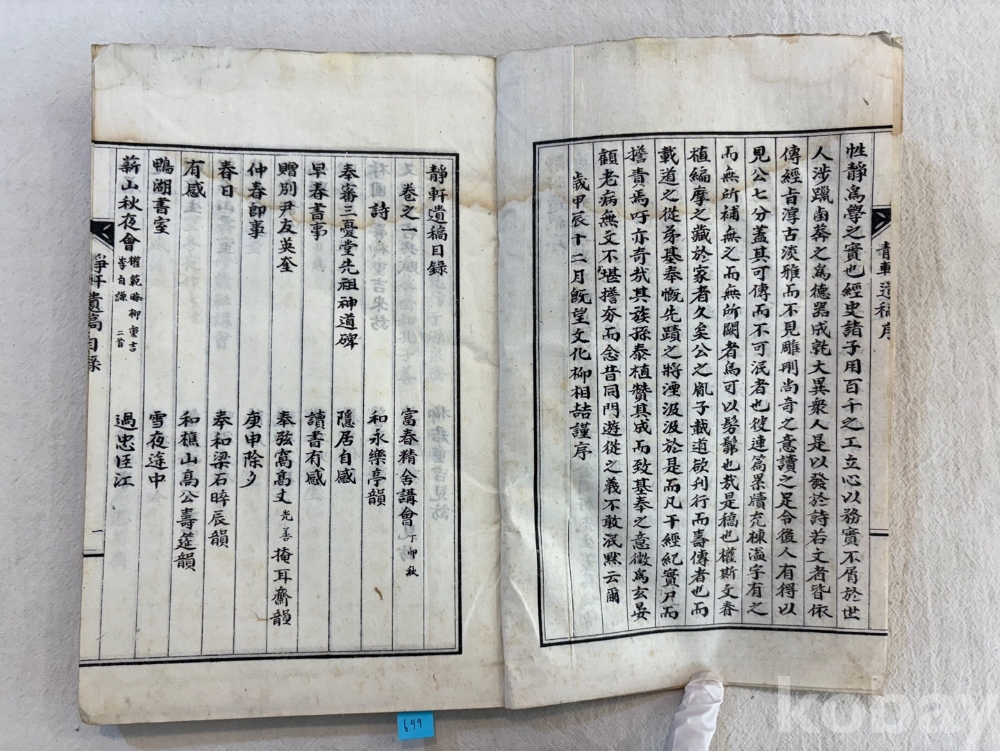 靜軒遺稿序
性靜爲學之實也經史諸子用百千之工立心以務實不屑於世
人涉躐鹵莽之爲德器成乾大異衆人是以發於詩若文者皆依
傳經旨淳古淡雅而不見雕刑尚奇之意讀之足令後人有得以
見公七分蓋其可傳而不可泯者也彼連篇累牘充棟溢宇有之
而無所補無之而無所闕者烏可以髣髴也哉是稿也權斯文春
植編摩之藏於家者久矣公之胤子載道欲刊行而壽傳者也而
載道之從弟基奉慨先蹟之將湮汲汲於是而凡干經紀實尸而
擔責焉吁亦奇哉其族孫泰植贊其成而致基奉之意徵爲玄晏
顧老病無文不堪擔夯而念昔同門遊從之義不敢泯默云爾
歲甲辰十二月旣望文化柳相喆謹序
靜軒遺稿目錄
卷之一
詩
富春精舍講會 丁卯秋
奉審三憂堂先祖神道碑
和永樂亭韻
早春書事
隱居自感
贈別尹友英奎
讀書有感
仲春卽事
奉弦窩高丈 光善 掩耳齋韻
春日
庚申除夕
有感
奉和梁石晬辰韻
鴨湖書室
和樵山高公壽筵韻
薪山秋夜會 權範略柳重吉李白謙 二首
雪夜途中
過忠臣江
靜軒遺稿目錄
一
699
kobay